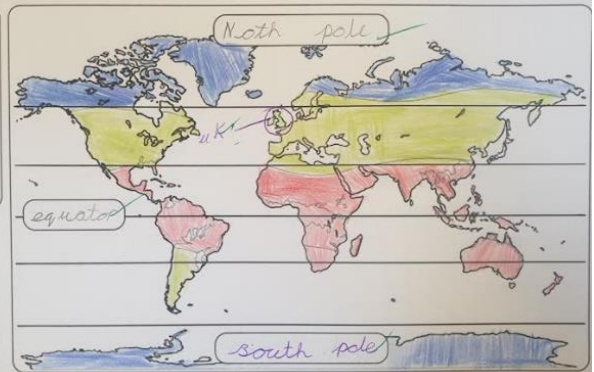 Noth pole
uK
equator
south pole